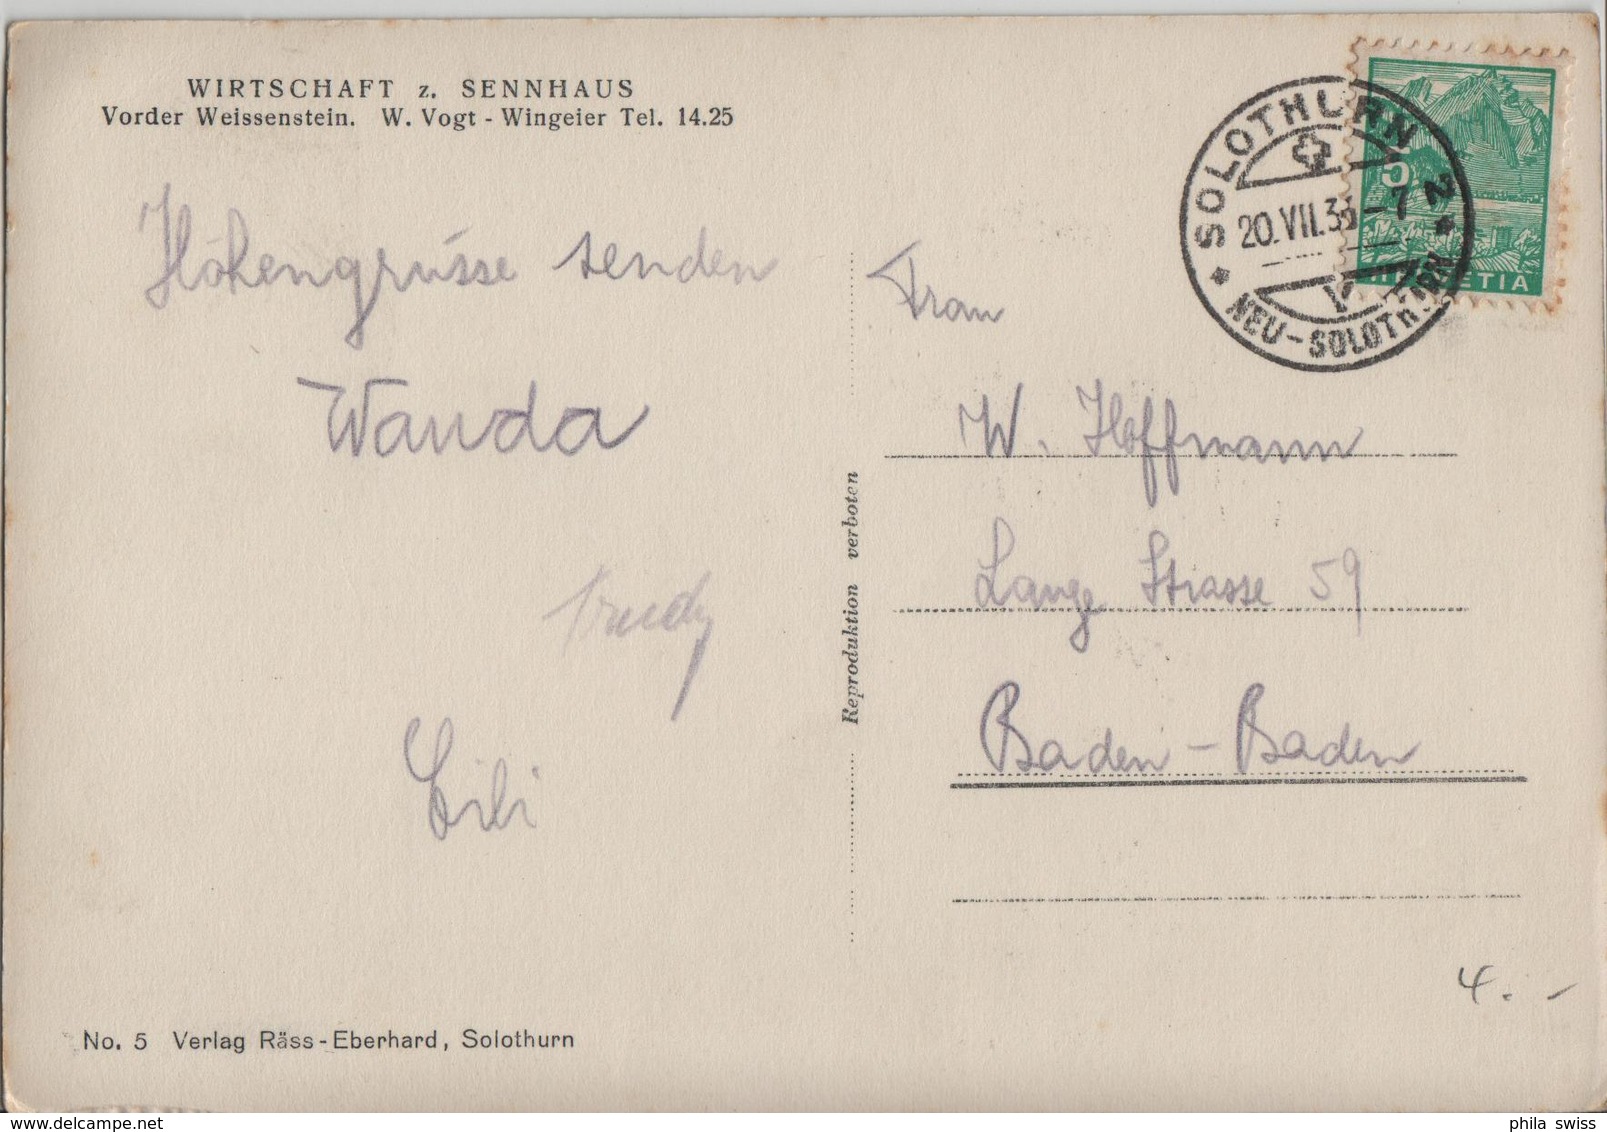 WIRTSCHAFT z. SENNHAUS
Vorder Weissenstein. W. Vogt - Wingeier Tel. 14.25
Höhengrüsse senden
Wanda
Trudy
Lili
No. 5 Verlag Räss-Eberhard, Solothurn
Reproduktion verboten
SOLOTHURN 2
20.VII.35 -7
NEU-SOLOTHURN
5
HELVETIA
Frau
W. Hoffmann
Lange Strasse 59
Baden-Baden
4.-
phila swiss